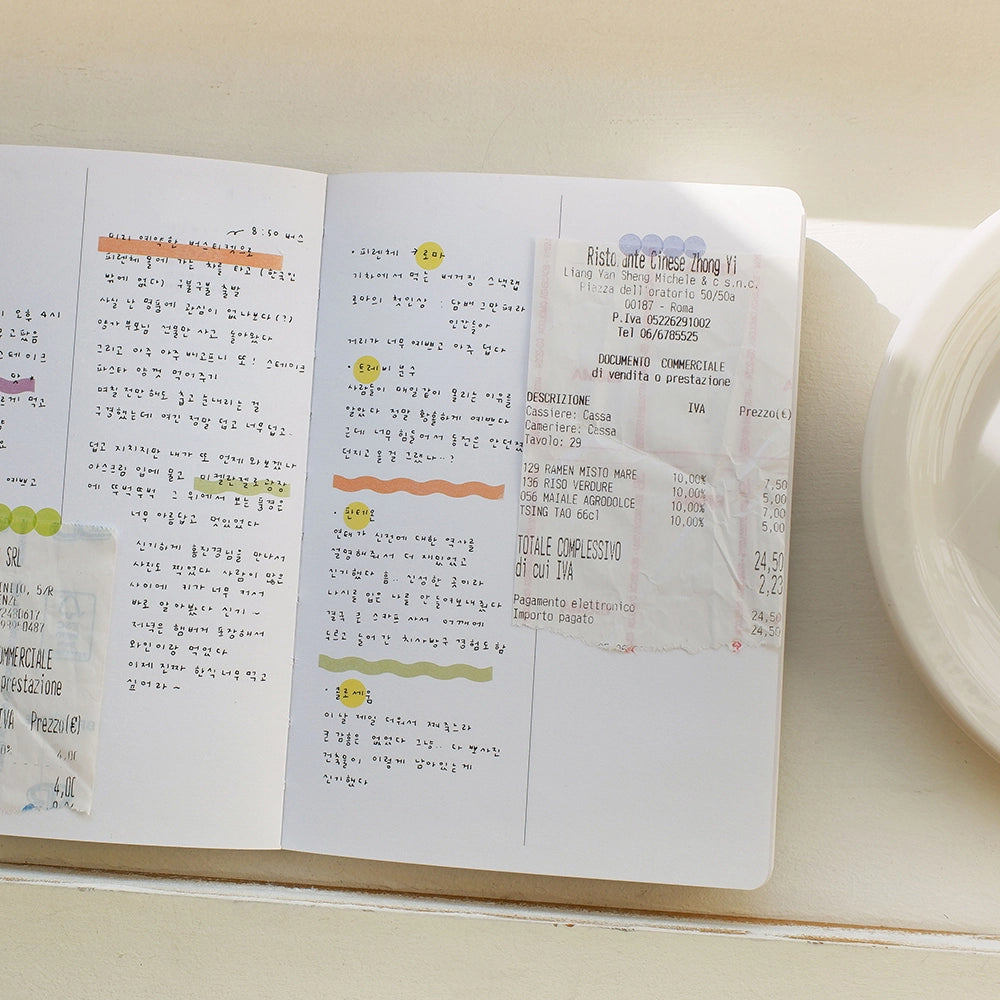 오후 4시
고 팠음
스테이크
맛
르게 먹고
예쁘고
SRL
5/R
2480617
OMMERCIALE
prestazione
IVA Prezzo(€)
4,00
4,00
8:50 버스
미리 예약한 버스티켓으로
피렌체 몰에 가는 차를 타고 (한국인
밖에 없다) 구불구불 출발
사실 난 명품에 관심이 없나보다(?)
양가 부모님 선물만 사고 돌아왔다
그리고 아주 아주 배고프니 또! 스테이크
파스타 양껏 먹어주기
며칠 전만 해도 춥고 눈내리는 걸
구경했는데 여긴 정말 덥고 너무덥고..
덥고 지치지만 내가 또 언제 와보겠나
아스크림 입에 물고 미켈란젤로 광장
에 뚜벅뚜벅 그 위에서 보는 풍경은
너무 아름답고 멋있었다
신기하게 홍진경님을 만나서
사진도 찍었다 사람이 많은
사이에 키가 너무 커서
바로 알아봤다 신기~
저녁은 햄버거 포장해서
와인이랑 먹었다
이제 진짜 한식 너무 먹고
싶어라~
· 피렌체 → 로마
기차에서 먹은 버거킹 스낵랩
로마의 첫인상 : 담배 그만펴라
인간들아
거리가 너무 예쁘고 아주 덥다
· 트레비 분수
사람들이 매일같이 몰리는 이유를
알았다 정말 황홀하게 예쁘다
근데 너무 힘들어서 동전은 안던졌
던지고 올걸 그랬나..?
· 판테온
연태가 신전에 대한 역사를
설명해줘서 더 재밌었고
신기했다 흠.. 신성한 곳이라
나시를 입은 나를 안 들여보내줬다
결국 숄 스카프 사서 어깨에
두르고 들어간 치사빵구 경험도 함
· 콜로세움
이날 제일 더워서 쩌죽느라
큰 감흥은 없었다 그냥.. 다 뽀사진
건축물이 이렇게 남아있는게
신기했다
Ristorante Cinese Zhong Yi
Liang Yan Sheng Michele & C s.n.c.
Piazza dell'oratorio 50/50a
00187 - Roma
P.Iva 05226291002
Tel 06/6785525
DOCUMENTO COMMERCIALE
di vendita o prestazione
DESCRIZIONE IVA Prezzo(€)
Cassiere: Cassa
Cameriere: Cassa
Tavolo: 29
129 RAMEN MISTO MARE 10,00% 7,50
136 RISO VERDURE 10,00% 5,00
056 MAIALE AGRODOLCE 10,00% 7,00
TSING TAO 66cl 10,00% 5,00
TOTALE COMPLESSIVO 24,50
di cui IVA 2,23
Pagamento elettronico 24,50
Importo pagato 24,50